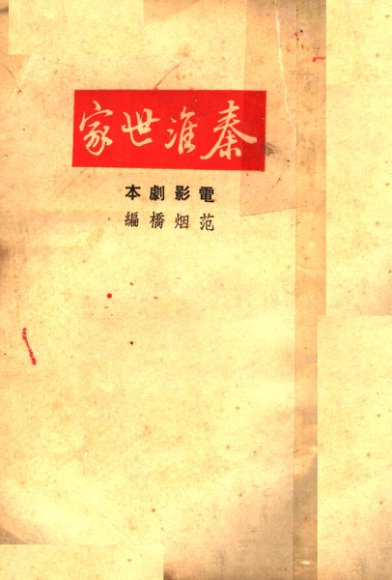 秦淮世家
電影劇本
范烟橋編